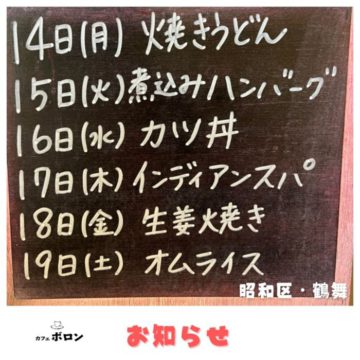 14日(月) 焼きうどん
15日(火)煮込みハンバーグ
16日(水) カツ丼
17日(木) インディアンスパ
18日(金) 生姜焼き
19日(土) オムライス
昭和区・鶴舞
カフェ ポロン
お知らせ